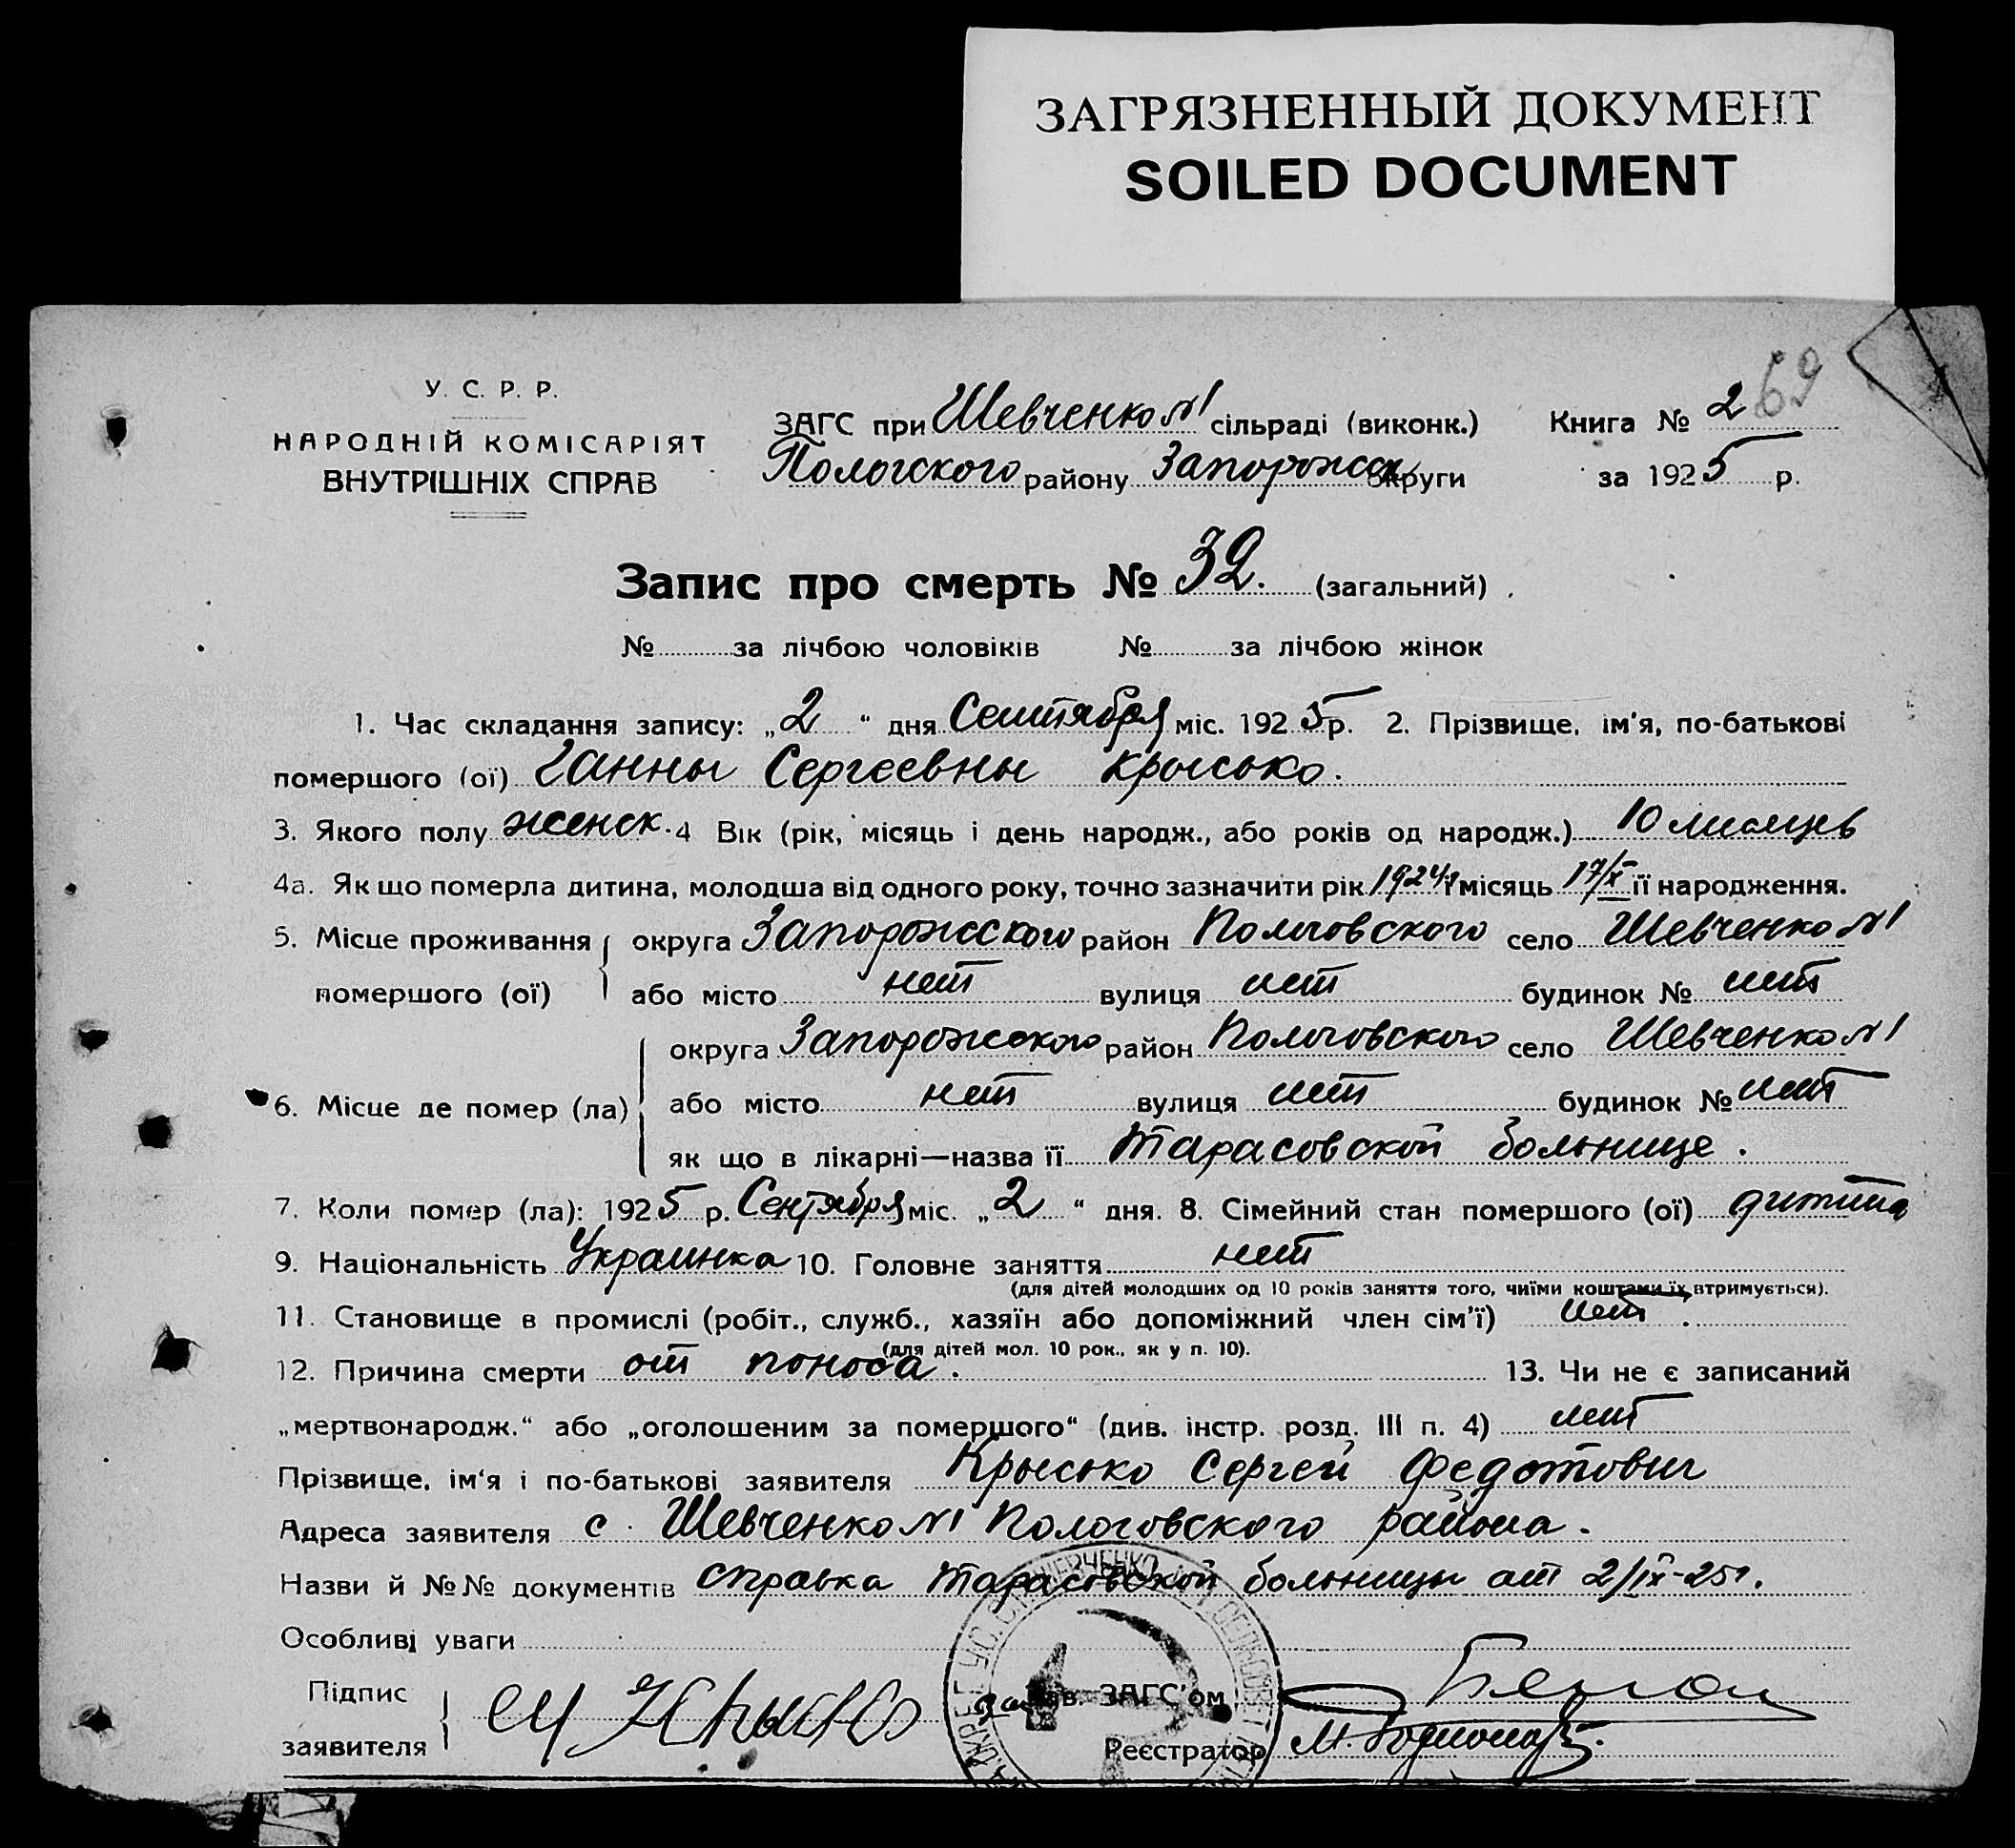 ЗАГРЯЗНЕННЫЙ ДОКУМЕНТ
SOILED DOCUMENT
69
У. С. Р. Р.
НАРОДНІЙ КОМІСАРІЯТ
ВНУТРІШНІХ СПРАВ
ЗАГС при Шевченко №1 сільраді (виконк.)
Пологского району Запорожск округи
Книга № 2
за 1925 р.
Запис про смерть № 32. (загальний)
№ за лічбою чоловіків № за лічбою жінок
1. Час складання запису: „2“ дня Сентября міс. 1925 р. 2. Прізвище, ім'я, по-батькові
помершого (ої) Ганны Сергеевны Крысько.
3. Якого полу женск. 4 Вік (рік, місяць і день народж., або років од народж.) 10 месяцев
4а. Як що померла дитина, молодша від одного року, точно зазначити рік 1924 і місяць 17/X її народження.
5. Місце проживання округа Запорожского район Пологовского село Шевченко №1
помершого (ої) або місто нет вулиця нет будинок № нет
округа Запорожского район Пологовского село Шевченко №1
6. Місце де помер (ла) або місто нет вулиця нет будинок № нет
як що в лікарні—назва її Тарасовской больнице.
7. Коли помер (ла): 1925 р. Сентября міс. „2“ дня. 8. Сімейний стан помершого (ої) дитина
9. Національність Украинка 10. Головне заняття нет
(для дітей молодших од 10 років заняття того, чиїми коштами їх втримується).
11. Становище в промислі (робіт., служб., хазяїн або допоміжний член сім'ї) нет.
(для дітей мол. 10 рок., як у п. 10).
12. Причина смерти от поноса. 13. Чи не є записаний
„мертвонародж.“ або „оголошеним за помершого“ (див. інстр. розд. III п. 4) нет
Прізвище, ім'я і по-батькові заявителя Крысько Сергей Федотович
Адреса заявителя с. Шевченко №1 Пологовского района.
Назви й №№ документів справка Тарасовской больницы от 2/IX-25г.
Особливі уваги
Підпис
заявителя
Зав. ЗАГС'ом
Реєстратор